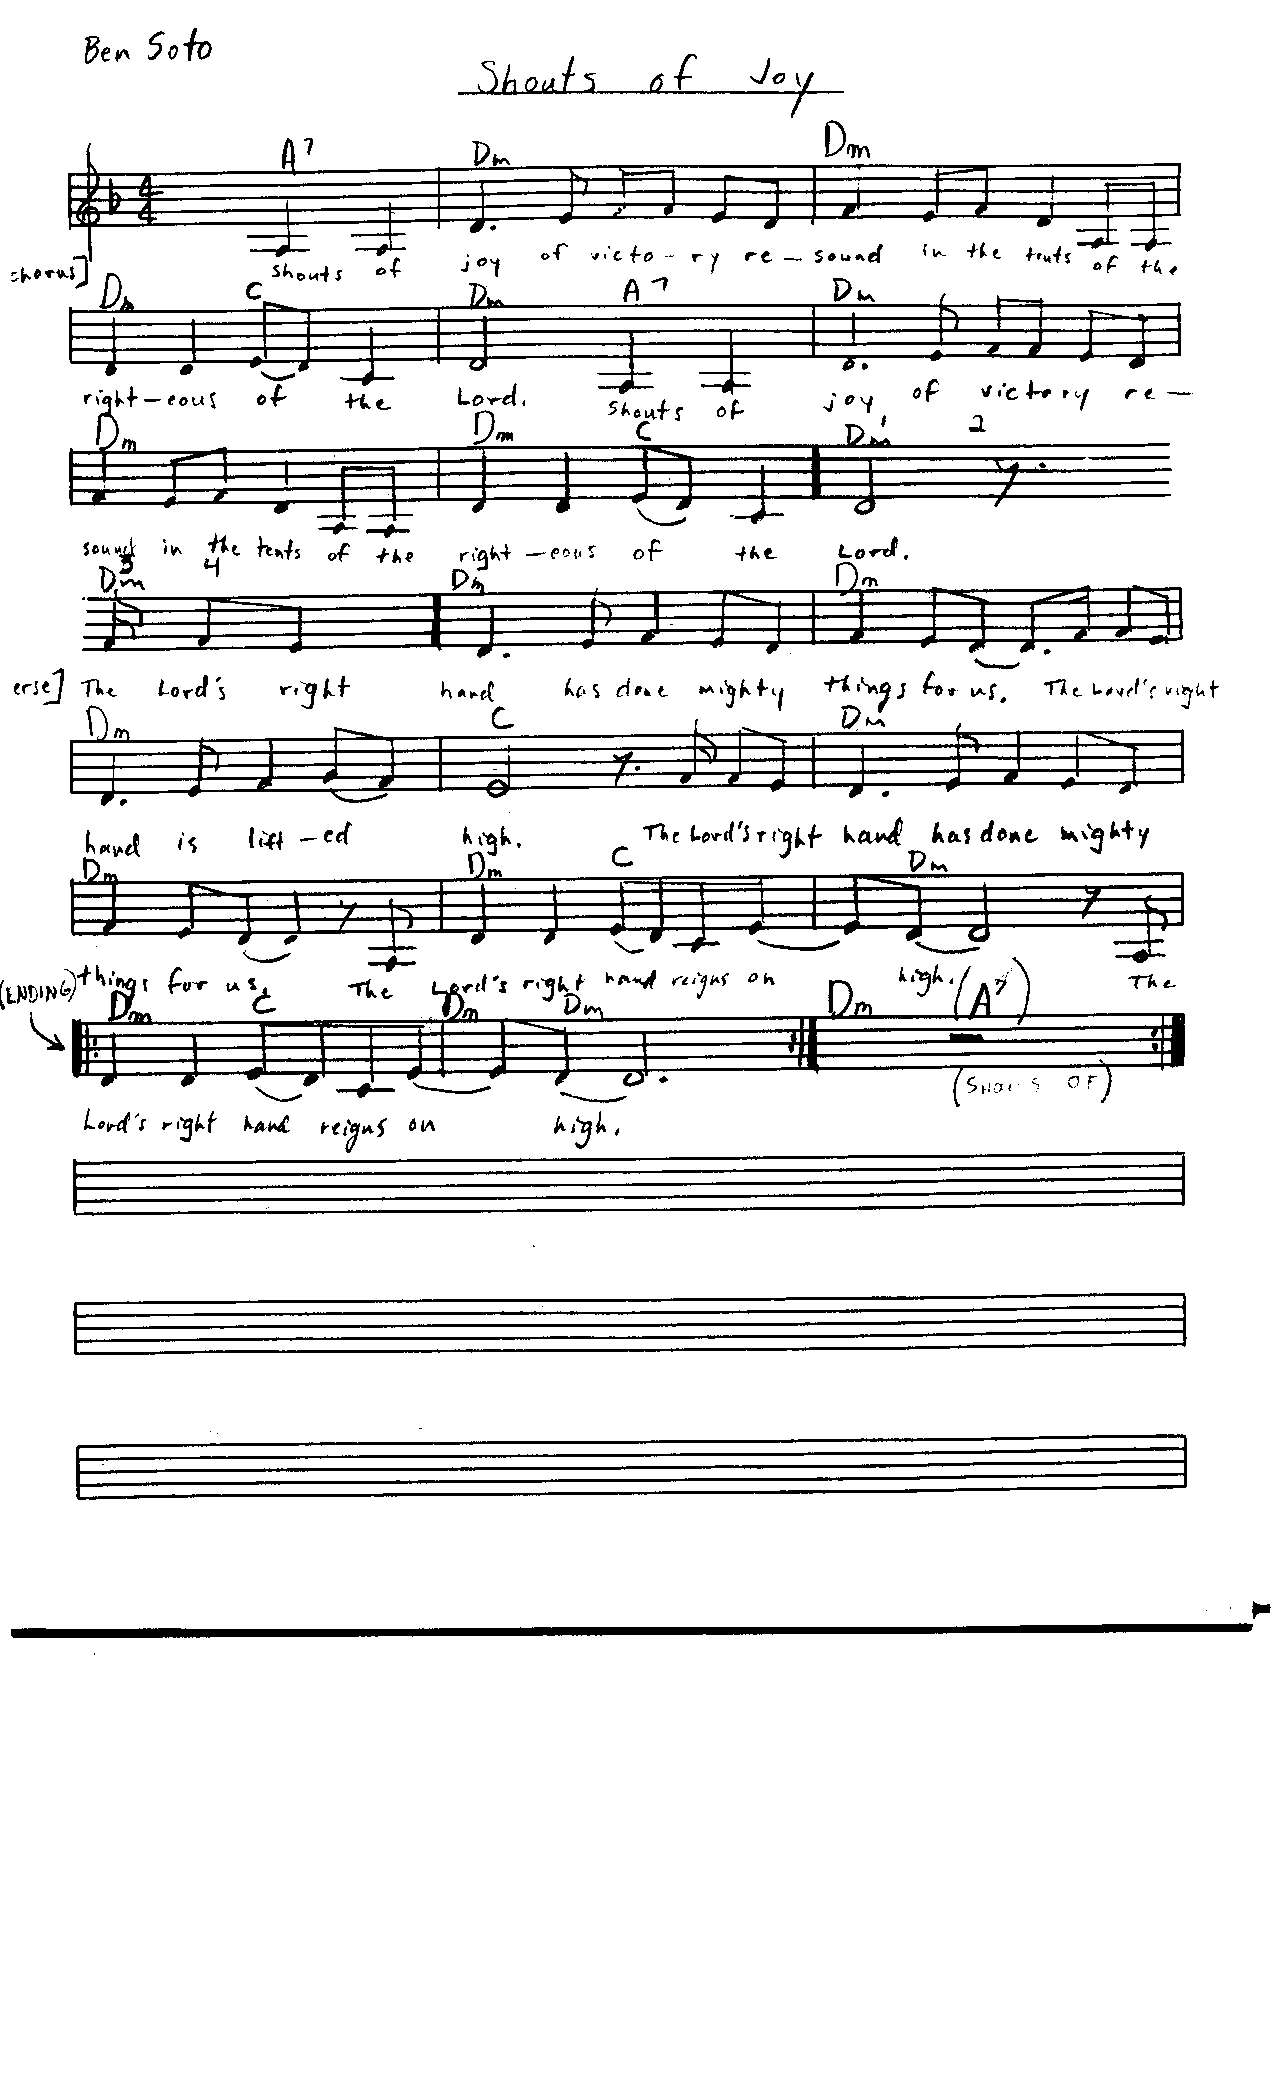 Ben Soto
Shouts of Joy
A7 Dm Dm
4
4
chorus] Shouts of joy of victo-ry re-sound in the tents of the
Dm C Dm A7 Dm
right-eous of the Lord. Shouts of joy of victory re-
Dm Dm C Dm 1 2
sound in the tents of the right-eous of the Lord.
3 4
Dm Dm Dm
erse] The Lord's right hand has done mighty things for us. The Lord's right
Dm C Dm
hand is lift-ed high. The Lord's right hand has done mighty
Dm Dm C Dm
things for us. The Lord's right hand reigns on high. The
(ENDING) Dm C Dm Dm Dm (A7)
(SHOUTS OF)
Lord's right hand reigns on high.